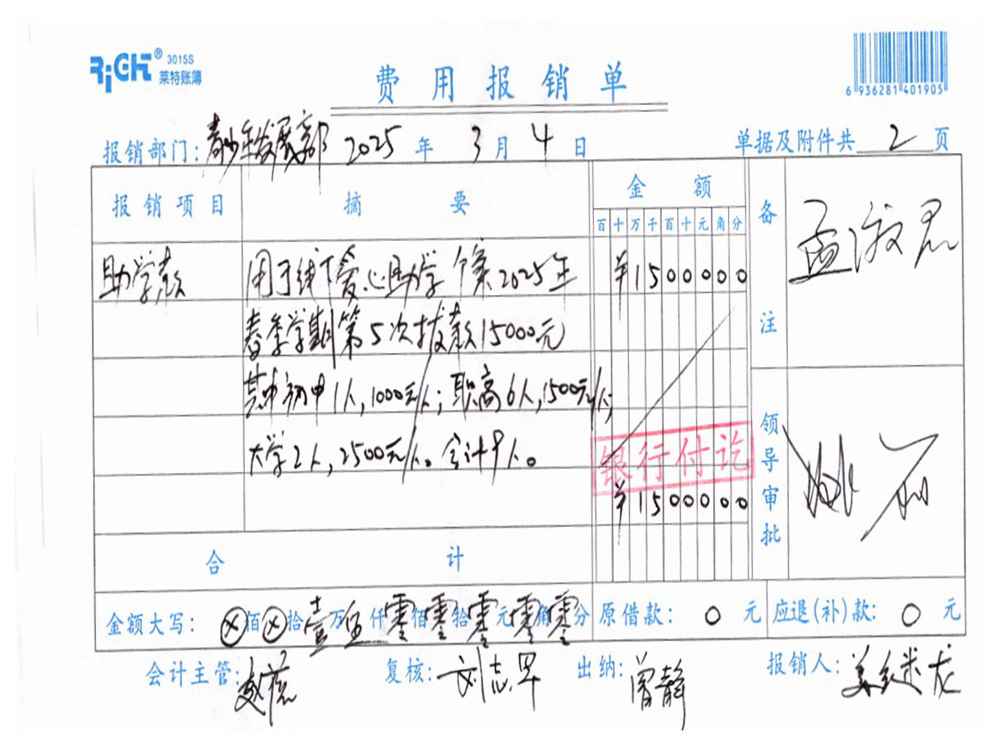 RiGHT® 3015S
莱特账簿
6 936281 401905
费用报销单
报销部门: 青少年发展部 2025 年 3 月 4 日 单据及附件共 2 页
报销项目 摘要 金额 备注
百 十 万 千 百 十 元 角 分
助学款 用于线下爱心助学个案2025年 ¥1500000
春季学期第5次拨款15000元
其中初中1人,1000元/人;职高6人,1500元/人;
大学2人,2500元/人。合计9人。
银行付讫
¥1500000
领导审批
合计
金额大写: ⊗佰⊗拾壹万伍仟零佰零拾零元零角零分 原借款: 0 元 应退(补)款: 0 元
会计主管: 复核: 刘志早 出纳: 曾静 报销人: